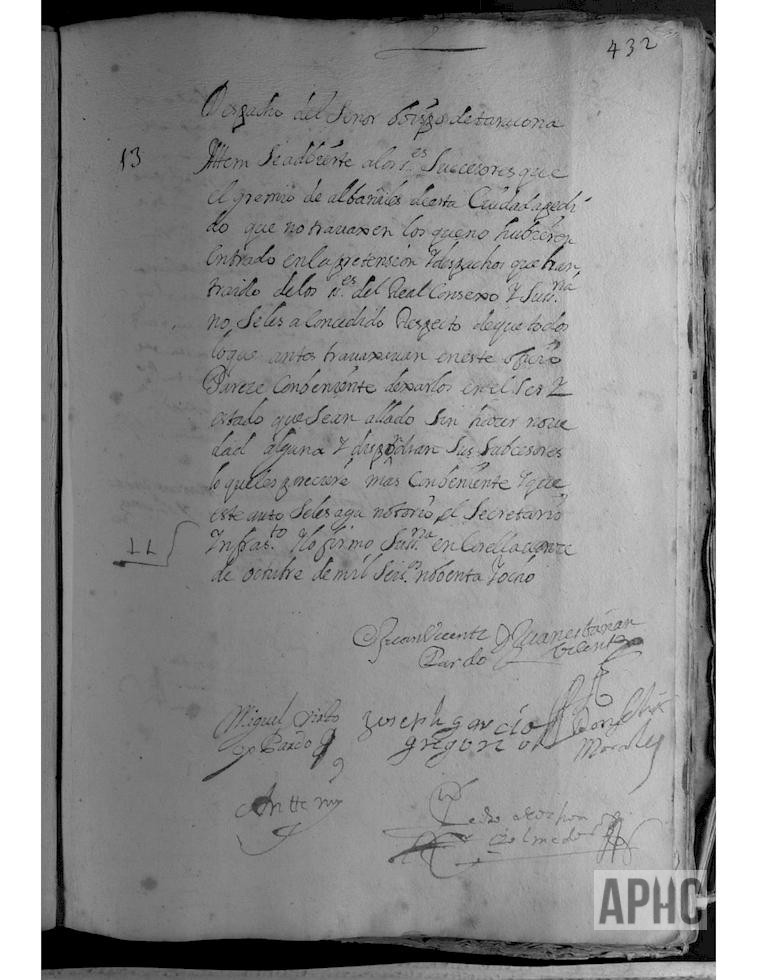 432
Despacho del Señor obispo de taracona
13
Ittem Se adbierte a los s.es Subcesores que
el gremio de albaniles de esta Ciudad a pedi-
do que no travaxen los que no hubieren
Entrado en la pretension Y despachos que han
traido de los s.es del Real Consexo Y Su m.na
no Seles a Concedido Respecto de que todos
los que antes travaxavan en este oficio
Pareze Conbeniente dexarlos en el Ser Y
estado que Se an allado Sin hacer nove
dad alguna Y dispondran Sus Subcesores
lo que les pareciere mas Conbeniente Y que
este auto Seles aga notorio el Secretario
Infras.to Y lo firmo Su m.na en Corella a once
de octubre de mil Seis.os nobenta Y ocho
11
Juan Vicente
Pardo
Juan
Miguel
Pardo
Joseph garcia
gregorio
Morales
Ante mi
Pedro
Olmedo
APHC